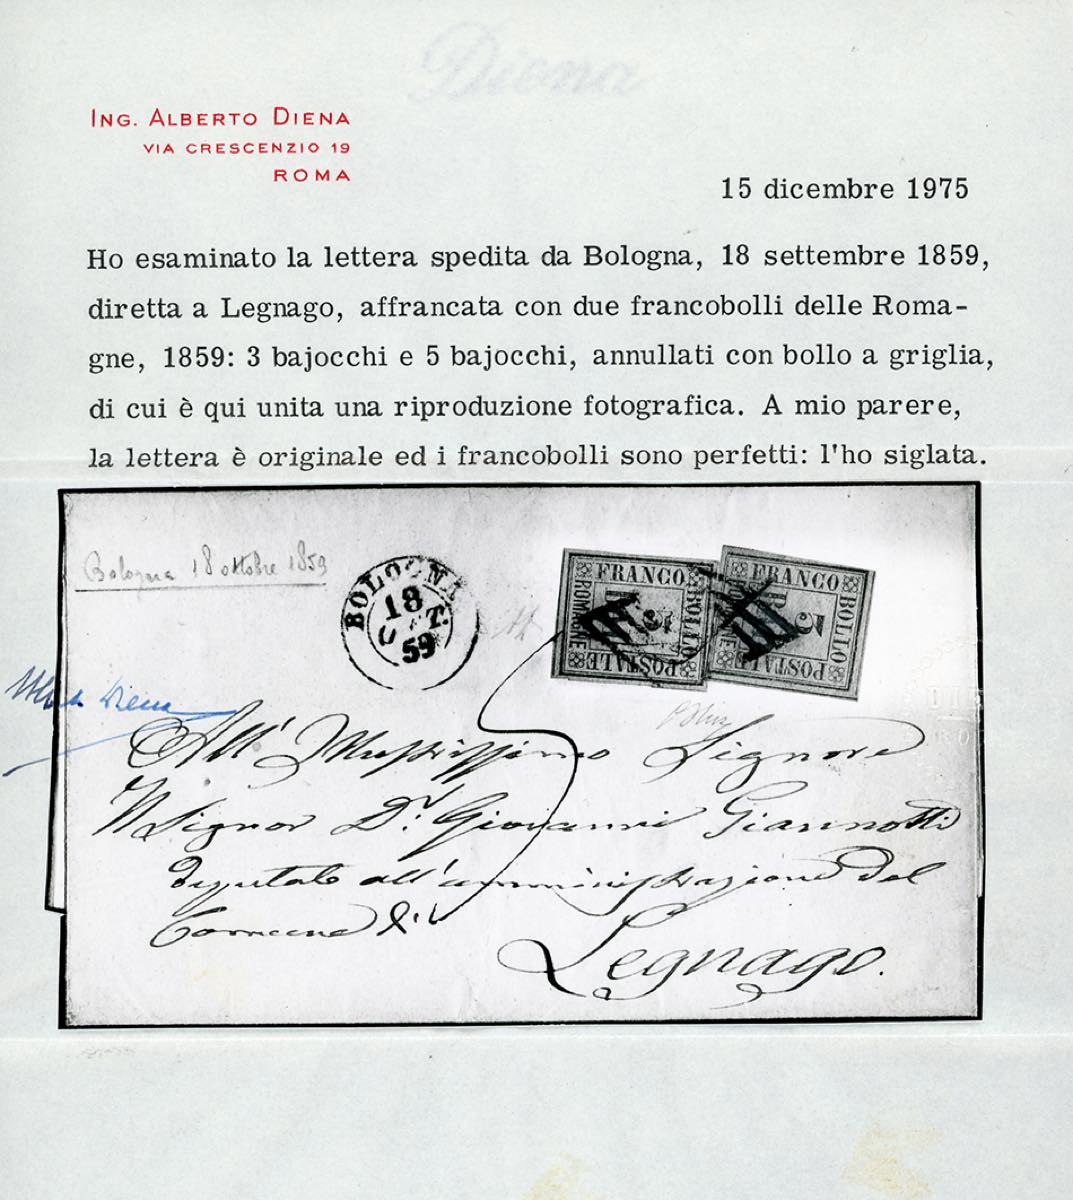 Diena
ING. ALBERTO DIENA
VIA CRESCENZIO 19
ROMA
15 dicembre 1975
Ho esaminato la lettera spedita da Bologna, 18 settembre 1859,
diretta a Legnago, affrancata con due francobolli delle Roma-
gne, 1859: 3 bajocchi e 5 bajocchi, annullati con bollo a griglia,
di cui è qui unita una riproduzione fotografica. A mio parere,
la lettera è originale ed i francobolli sono perfetti: l'ho siglata.
Bologna 18 ottobre 1859
BOLOGNA
18
OTT.
59
FRANCO
BOLLO
POSTALE
ROMAGNE
FRANCO
BOLLO
POSTALE
5
Diena
All' Signore
Il Signor Dr. Giovanni Giannotti
Deputato all'amministrazione del
Comune di
Legnago.